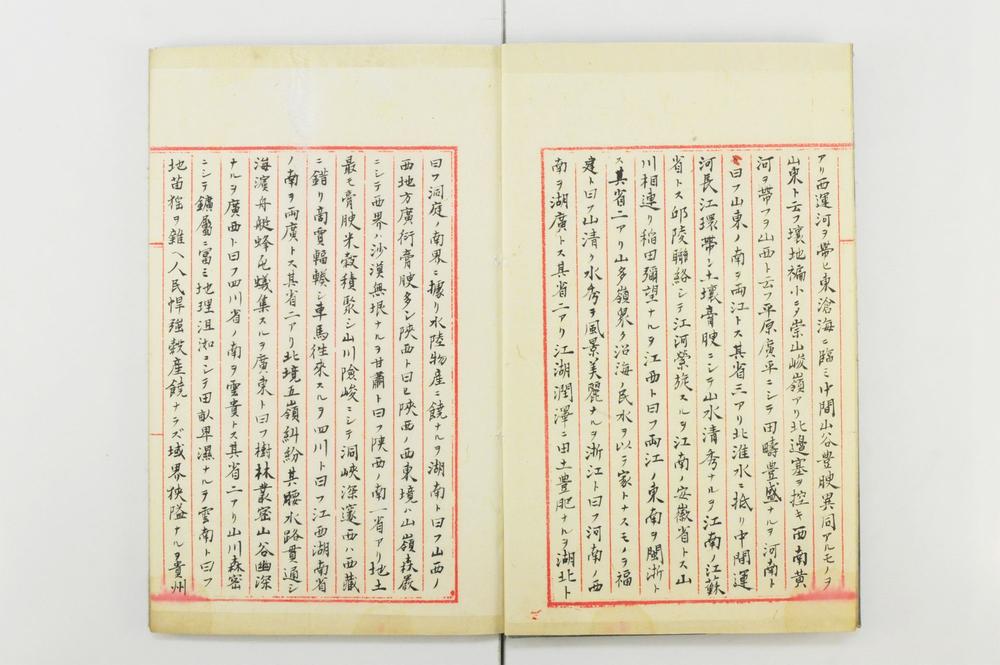 アリ西運河ヲ帶ヒ東滄海ニ臨ミ中間山谷豊腴異同アルモノヲ
山東ト云フ壤地褊小ニ〆崇山峻嶺アリ北邊塞ヲ控キ西南黄
河ヲ帶フヲ山西ト云フ平原廣平ニシテ田疇豊盛ナルヲ河南ト
曰フ山東ノ南ヲ両江トス其省三アリ北淮水ニ抵リ中間運
河長江環帶シ土壤膏腴ニシテ山水清秀ナルヲ江南ノ江蘇
省トス邱陵聯絡シテ江河縈旋スルヲ江南ノ安徽省トス山
川相連リ稲田彌望ナルヲ江西ト曰フ両江ノ東南ヲ閩浙ト
ス其省二アリ山多嶺衆ク沿海ノ民水ヲ以テ家トナスモノヲ福
建ト曰フ山清ク水秀ヲ風景美麗ナルヲ浙江ト曰フ河南ノ西
南ヲ湖廣トス其省二アリ江湖潤澤ニ田土豊肥ナルヲ湖北ト
曰フ洞庭ノ南界ニ據リ水陸物産ニ饒ナルヲ湖南ト曰フ山西ノ
西地方廣衍膏腴多シ陝西ト曰ヒ陝西ノ西東境ハ山嶺森嚴
ニシテ西界ハ沙漠無垠ナルヲ甘肅ト曰フ陝西ノ南一省アリ地土
最モ膏腴米穀積聚シ山川險峻ニシテ洞峽深邃西ハ西藏
ニ錯リ商賈輻輳シ車馬徃來スルヲ四川ト曰フ江西湖南省
ノ南ヲ両廣トス其省二アリ北境五嶺糾紛其腰水路貫通シ
海濱舟艇蜂屯蟻集スルヲ廣東ト曰フ樹林叢密山谷幽深
ナルヲ廣西ト曰フ四川省ノ南ヲ雲貴トス其省二アリ山川森密
ニシテ鑛屬ニ富ミ地理沮洳ニシテ田畝卑濕ナルヲ雲南ト曰フ
地苗猺ヲ錐ヘ人民悍強穀産饒ナラズ域界狹隘ナルヲ貴州